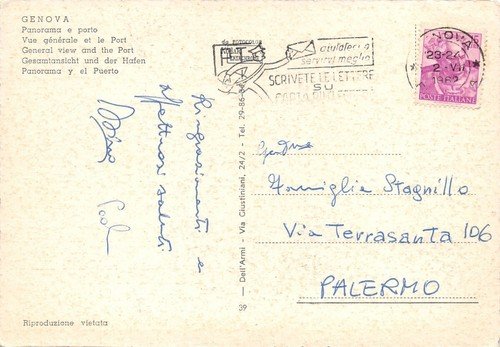 GENOVA
Panorama e porto
Vue générale et le Port
General view and the Port
Gesamtansicht und der Hafen
Panorama y el Puerto
Ringraziamenti e
affettuosi saluti
— Dell'Armi - Via Giustiniani, 24/2 - Tel. 29-86-
39
Riproduzione vietata
aiutateci a
servirvi meglio
SCRIVETE LE LETTERE
SU
NOVA
23-24
2-VII
1962
POSTE ITALIANE
Famiglia Stagnillo
Via Terrasanta 106
PALERMO